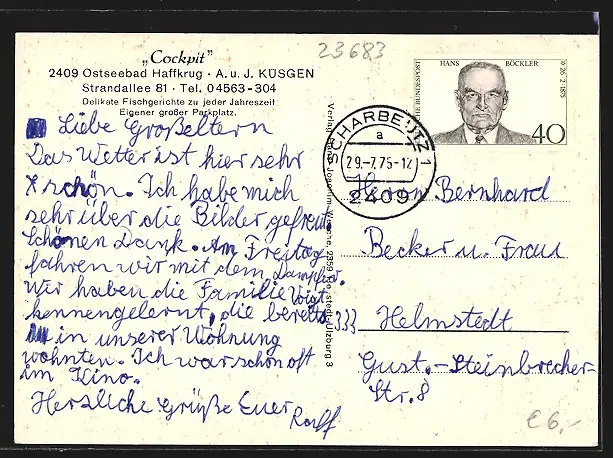 23683
„Cockpit"
2409 Ostseebad Haffkrug · A. u. J. KÜSGEN
Strandallee 81 · Tel. 04563-304
Delikate Fischgerichte zu jeder Jahreszeit
Eigener großer Parkplatz.
Liebe Großeltern
Das Wetter ist hier sehr
schön. Ich habe mich
sehr über die Bilder gefreut.
Schönen Dank. Am Freitag
fahren wir mit dem Dampfer.
Wir haben die Familie Voigt
kennengelernt, die bereits
in unserer Wohnung
wohnten. Ich war schon oft
im Kino.
Herzliche Grüße Euer
Ralf
Verlag
2359
3
DEUTSCHE BUNDESPOST
HANS BÖCKLER
* 26·2·1875
40
SCHARBEUTZ 1
a
29.-7.75-12
2409
Herrn Bernhard
Becker u. Frau
333 Helmstedt
Gust.-Steinbrecher-
Str. 8
€ 6,-